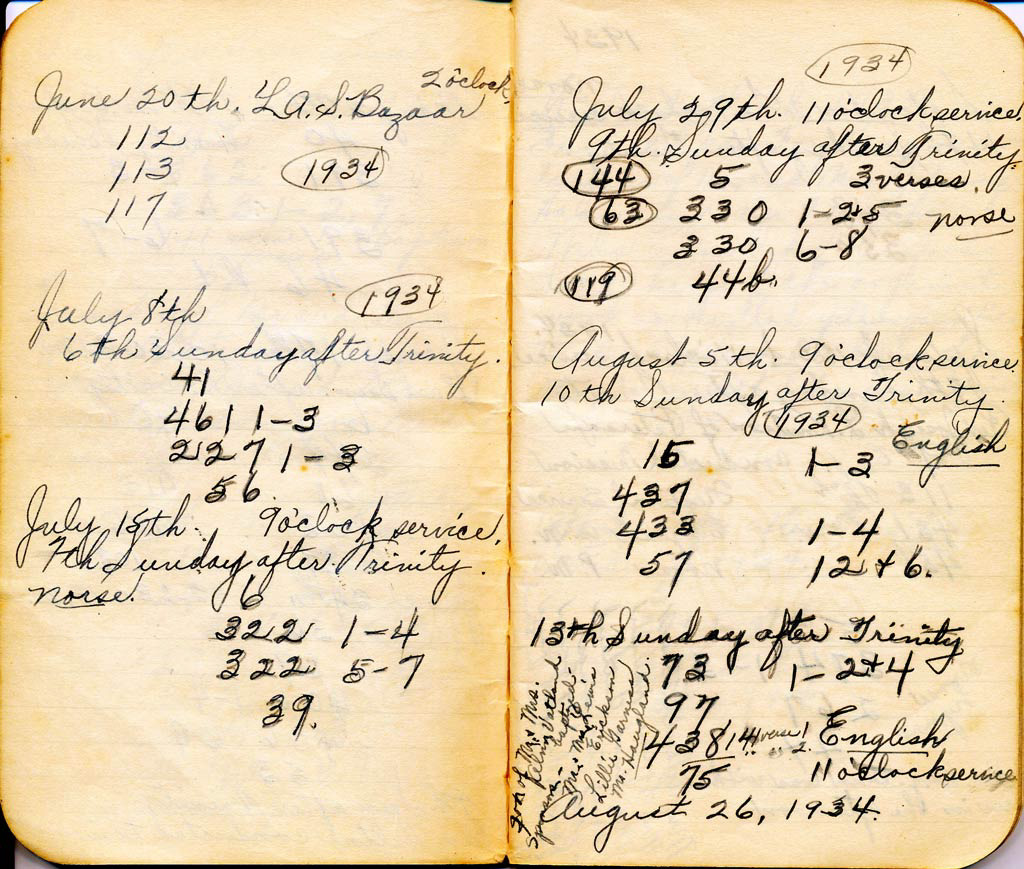 2 o'clock.
June 20th. L.A.S. Bazaar
112
113 1934
117
July 8th 1934
6th Sunday after Trinity.
41
461 1-3
227 1-3
56.
July 15th 9 o'clock service.
7th Sunday after Trinity.
norse. 6
322 1-4
322 5-7
39.
1934
July 29th. 11 o'clock service.
9th. Sunday after Trinity.
144 5 3 verses.
63 330 1-2+5 norse
330 6-8
119 44b.
August 5th. 9 o'clock service.
10th Sunday after Trinity.
1934 English
15 1-3
437
433 1-4
57 12+6.
13th Sunday after Trinity
73 1-2+4
97
438 141 verse 1 English
" " 2.
75 11 o'clock service
August 26, 1934.
Son of Mr. & Mrs.
Sponsors- baptised.
Mr. Mrs. Lewis
Lillie Erickson
Mr. Haugland.